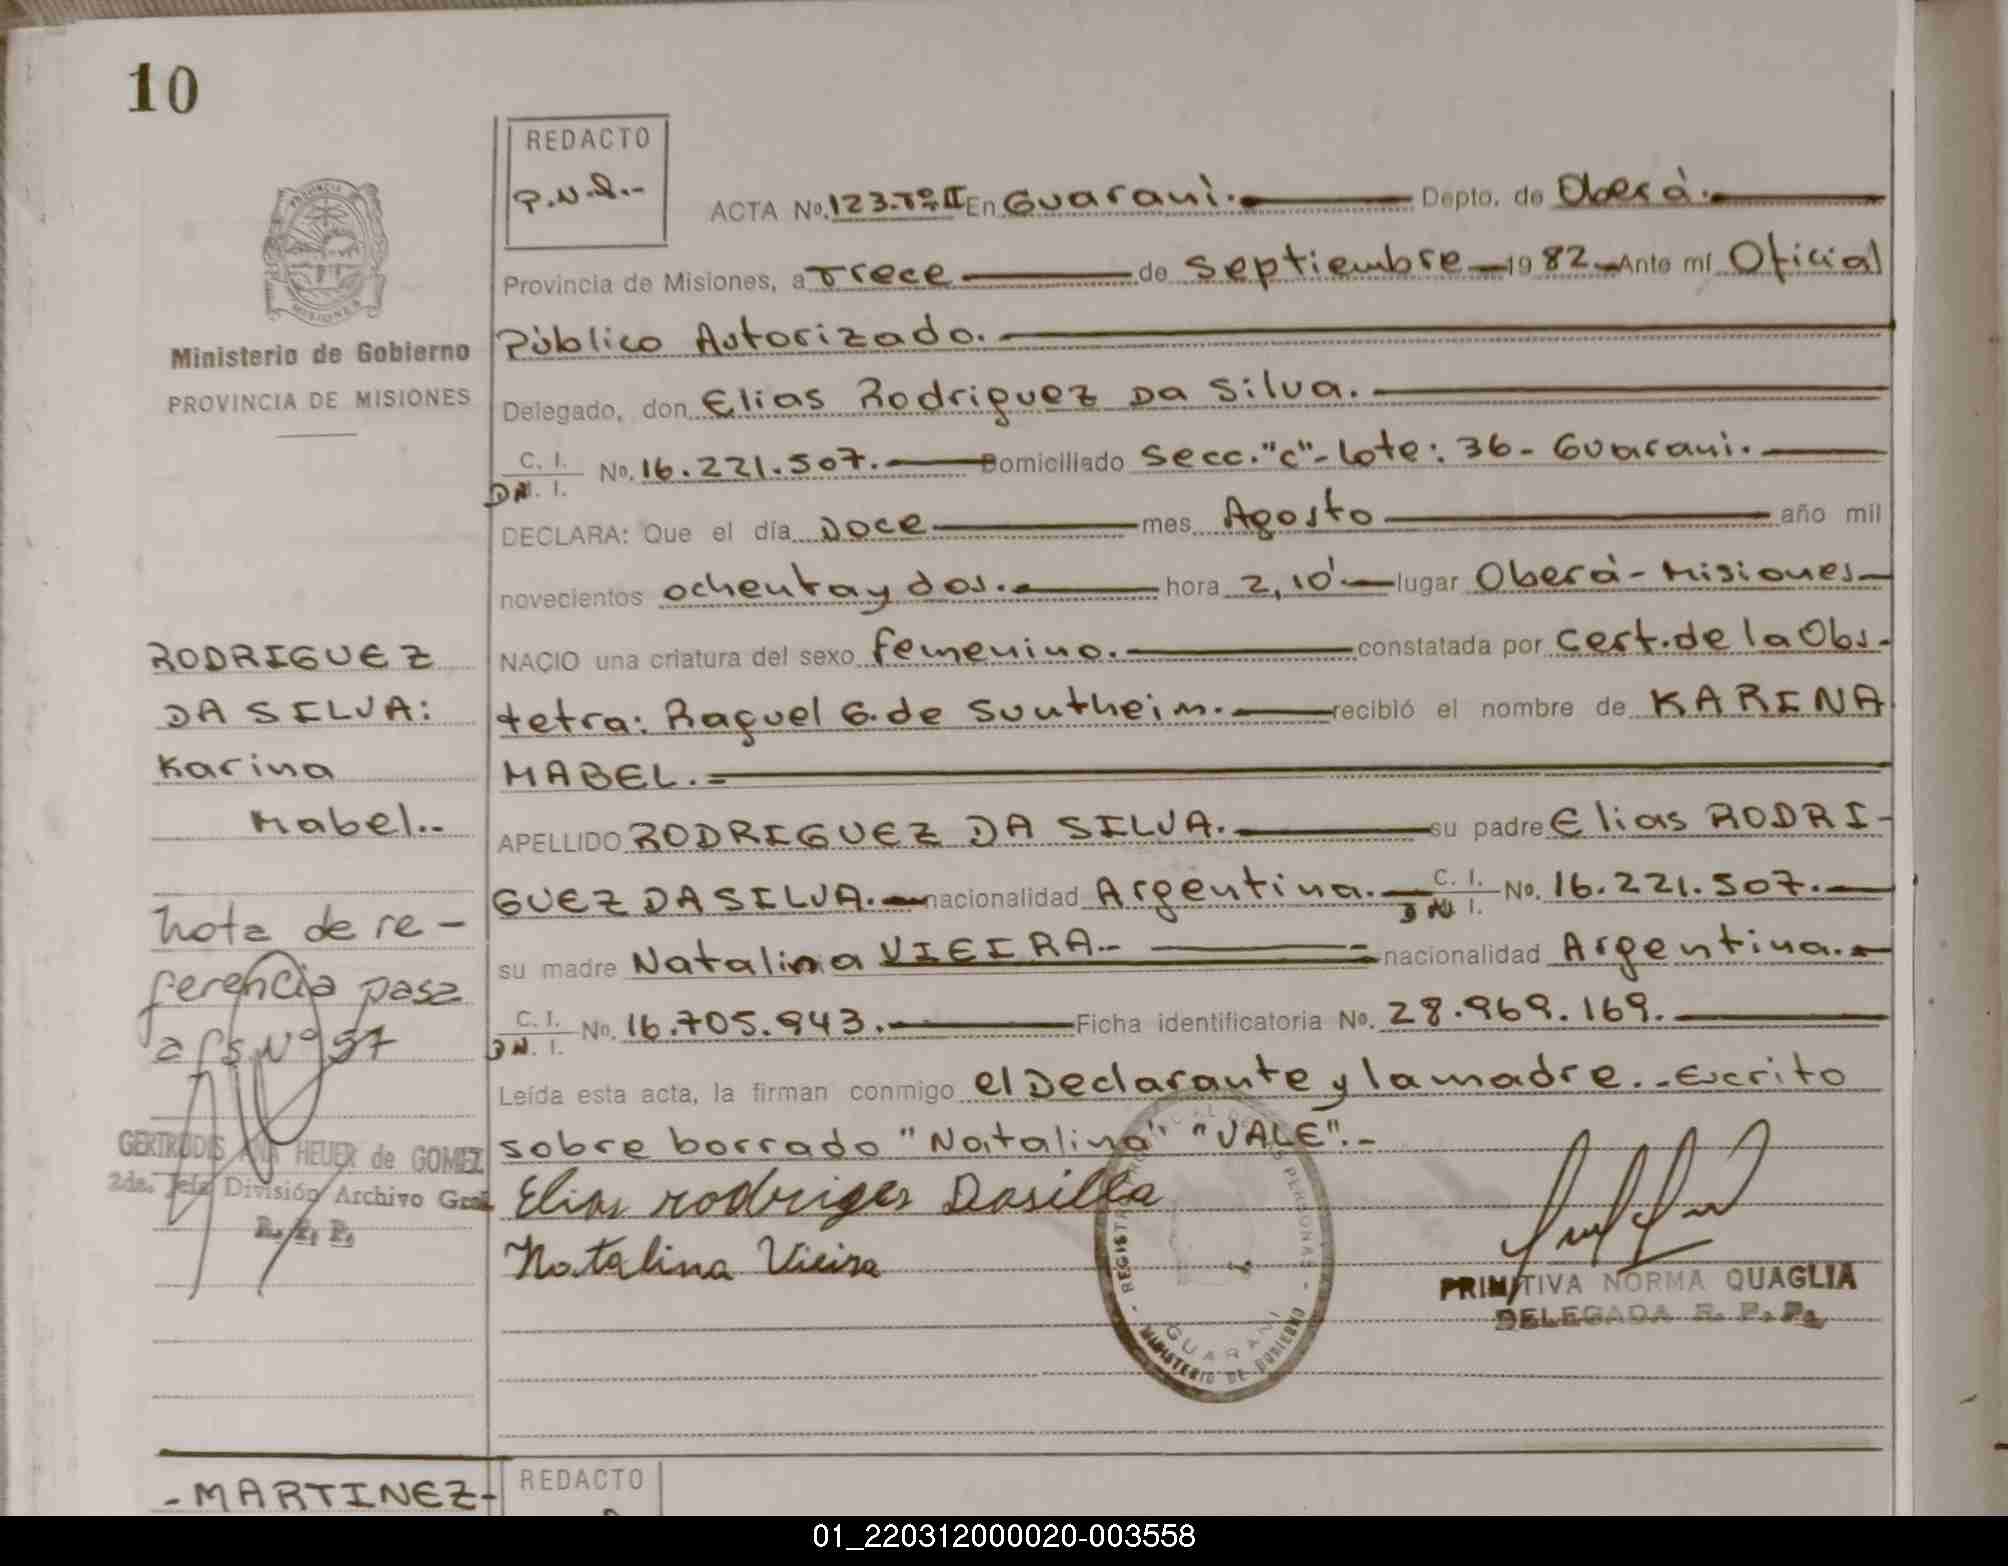 10
REDACTO
P.N.Q.-
ACTA No. 123.Tº II En Guaraní. Depto. de Oberá.
Provincia de Misiones, a Trece de Septiembre 19 82 Ante mí Oficial
Público Autorizado.
Delegado, don Elias Rodriguez Da Silva.
C. I. DN. I. No. 16.221.507. Domiciliado Secc. "C"- Lote: 36 - Guaraní.
DECLARA: Que el día Doce mes Agosto año mil
novecientos ochenta y dos. hora 2,10' lugar Oberá - Misiones
NACIO una criatura del sexo femenino. constatada por Cert. de la Obs-
tetra: Raquel G. de Suntheim. recibió el nombre de KARINA
MABEL.=
APELLIDO RODRIGUEZ DA SILVA. su padre Elias RODRI-
GUEZ DA SILVA. nacionalidad Argentina. C. I. DN I. No. 16.221.507.
su madre Natalina VIEIRA.- nacionalidad Argentina.
C. I. DN. I. No. 16.705.943. Ficha identificatoria No. 28.969.169.
Leída esta acta, la firman conmigo el Declarante y la madre.- Escrito
sobre borrado "Natalina" "VALE".-
Elias rodriges Dasilba
Natalina Vieira
PRIMITIVA NORMA QUAGLIA
DELEGADA R. P. P.
GUARANI
MINISTERIO DE GOBIERNO
PROVINCIA
MISIONES
Ministerio de Gobierno
PROVINCIA DE MISIONES
RODRIGUEZ
DA SILVA:
Karina
Mabel..
Nota de re-
ferencia pasa
a fs. Nº 97
GERTRUDIS ANA HEUER de GOMEZ
2da. Jefa División Archivo Gral
R. P. P.
- MARTINEZ -
REDACTO
01_220312000020-003558